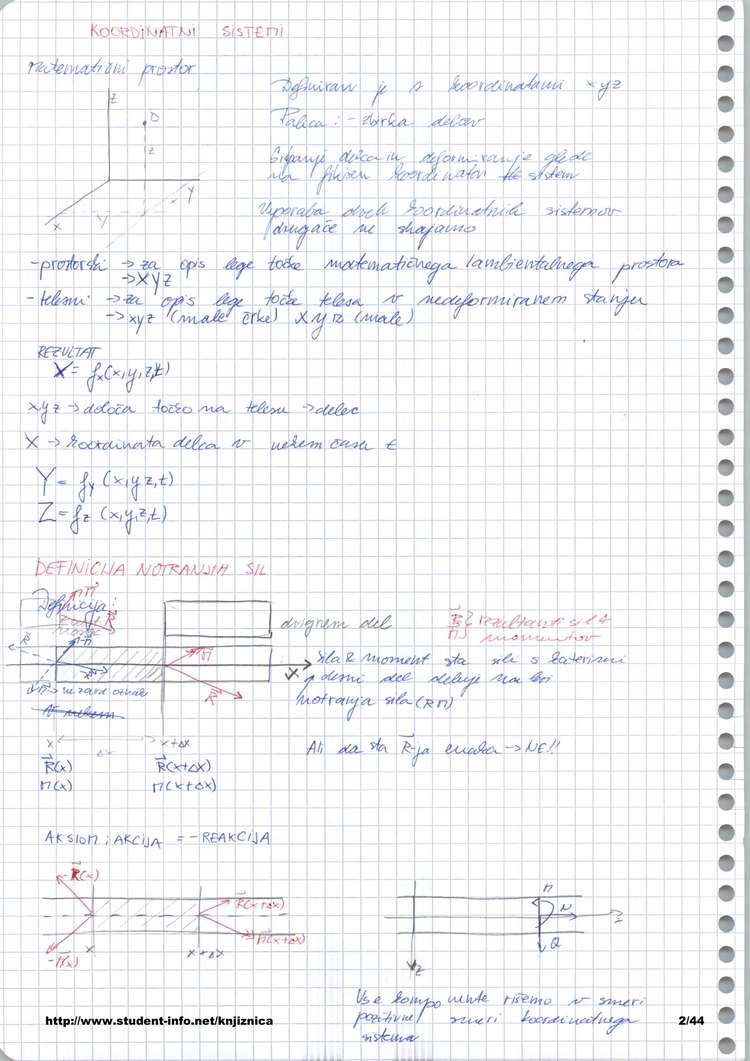 KOORDINATNI SISTEMI
Matematični prostor
Definiran je s koordinatami xyz
z
D
Palica: - zbirka delcev
z
Gibanje delca in deformiranje glede
na fiksen koordinatni sistem
x
y
y
Uporaba dveh koordinatnih sistemov
drugače ne shajamo
- prostorski → za opis lege točke matematičnega /ambientalnega prostora
→ XYZ
- telesni → za opis lege točke telesa v nedeformiranem stanju
→ xyz (male črke) xyz (male)
REZULTAT
X = fx(x,y,z,t)
xyz → določa točko na telesu → delec
X → koordinata delca v nekem času t
Y = fy (x,y,z,t)
Z = fz (x,y,z,t)
DEFINICIJA NOTRANJIH SIL
Definicija:
M
R
dvignem del
R } rezultanti sil &
M } momentov
R
-M
M
x
Sila R moment sta sili s katerimi
desni del deluje na levi
R
notranja sila (RM)
x
Δx
x+Δx
Ali da sta R-ja enaka → NE!!
R(x)
R(x+Δx)
M(x)
M(x+Δx)
AKSIOM: AKCIJA = - REAKCIJA
-R(x)
R(x+Δx)
M(x+Δx)
-M(x)
x
x+Δx
M
N
Q
z
Vse komponente rišemo v smeri
pozitivne smeri koordinatnega
sistema
http://www.student-info.net/knjiznica
2/44